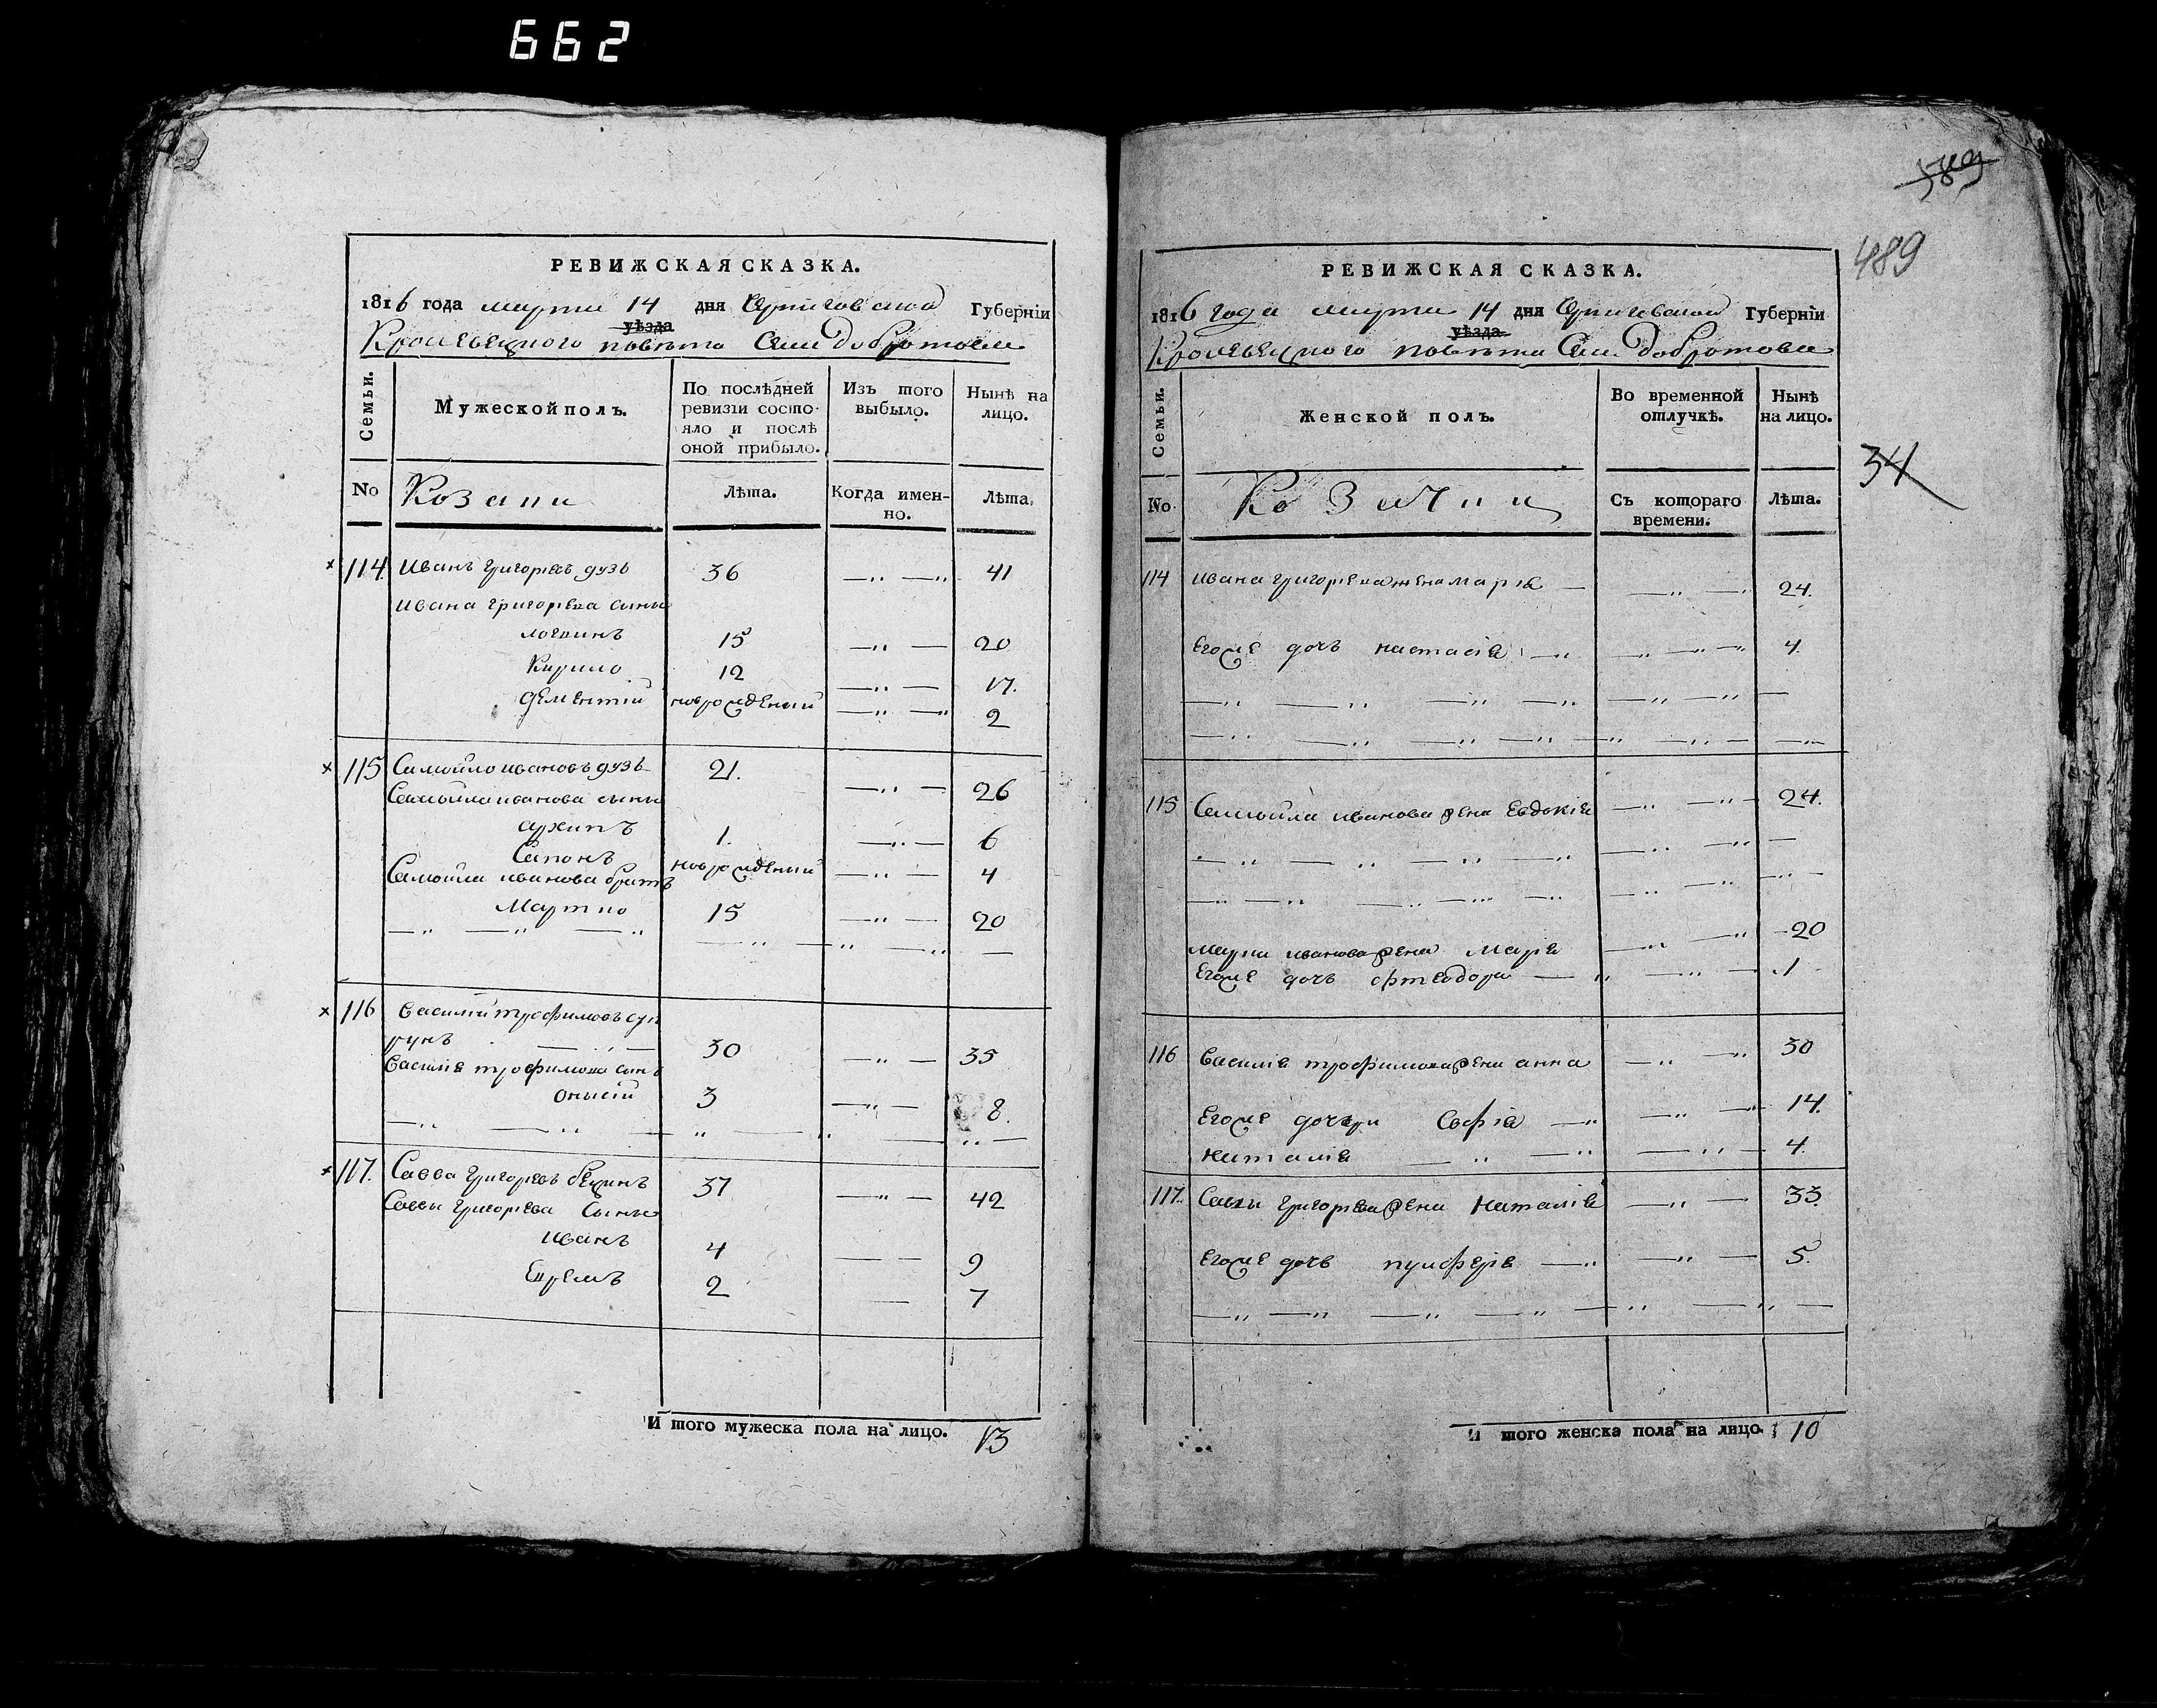 662
РЕВИЖСКАЯ СКАЗКА.
1816 года марта 14 дня Черниговской Губерніи
уѣзда
Кролевецкого повѣта Села Добротова
Семьи.
Мужеской полъ.
По послѣдней ревизіи состояло и послѣ оной прибыло.
Изъ того выбыло.
Нынѣ на лицо.
No
Козаки
Лѣта.
Когда именно.
Лѣта.
114 Иванъ Григорьевъ дузь 36 41
Ивана Григорьева сыны
логвинъ 15 20
Кирило 12 17.
дементій новрожденный 2
115 Самойло ивановъ дузь 21. 26
Самойла иванова сыны
архипъ 1. 6
Сапонъ новрожденный 4
Самойла иванова братъ
Марко 15 20
116 Василій трофимовъ суп
рунъ 30 35
Василія трофимова сынъ
онисій 3 8.
117. Савва Григорьевъ 37 42
Саввы Григорьева Сыны
иванъ 4 9
Ефремъ 2 7
И того мужеска пола на лицо. 13
589
489
34
РЕВИЖСКАЯ СКАЗКА.
1816 года марта 14 дня Черниговской Губерніи
уѣзда
Кролевецкого повѣта Села Добротова
Семьи.
Женской полъ.
Во временной отлучкѣ.
Нынѣ на лицо.
No.
Козачки
Съ котораго времени.
Лѣта.
114 ивана григорьева жена марія 24.
Егоже дочь настасія 4.
115 Самойла иванова жена Евдокія 24.
Марка иванова жена Марія 20
Егоже дочь фтеодора 1
116 Василія трофимова жена анна 30
Егоже дочери Софія 14.
Наталія 4.
117. Саввы григорьева жена Наталія 33.
Егоже дочь пулферія 5.
И того женска пола на лицо. 10